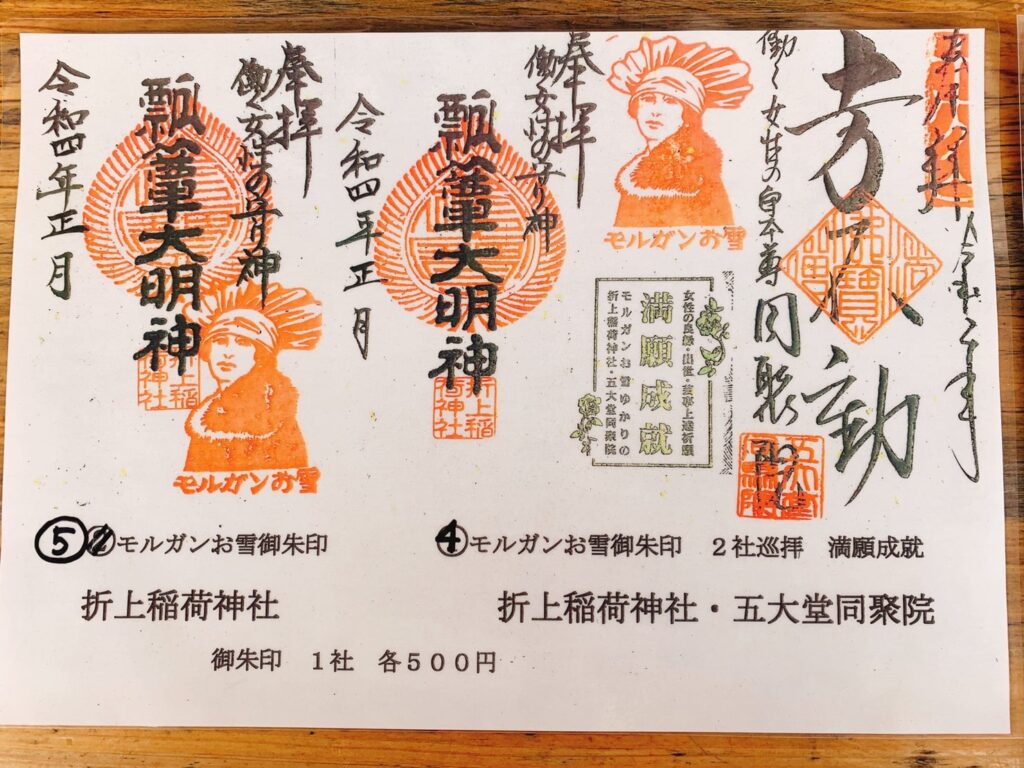 奉拝
働く女性の守り神
瓢箪大明神
令和四年正月
折上稲荷神社
モルガンお雪
奉拝
働く女性の守り神
瓢箪大明神
令和四年正月
折上稲荷神社
モルガンお雪
働く女性の
同聚院
五大堂
満願成就
女性の良縁・出世・芸事上達祈願
モルガンお雪ゆかりの
折上稲荷神社・五大堂同聚院
⑤モルガンお雪御朱印
折上稲荷神社
④モルガンお雪御朱印 2社巡拝 満願成就
折上稲荷神社・五大堂同聚院
御朱印 1社 各500円